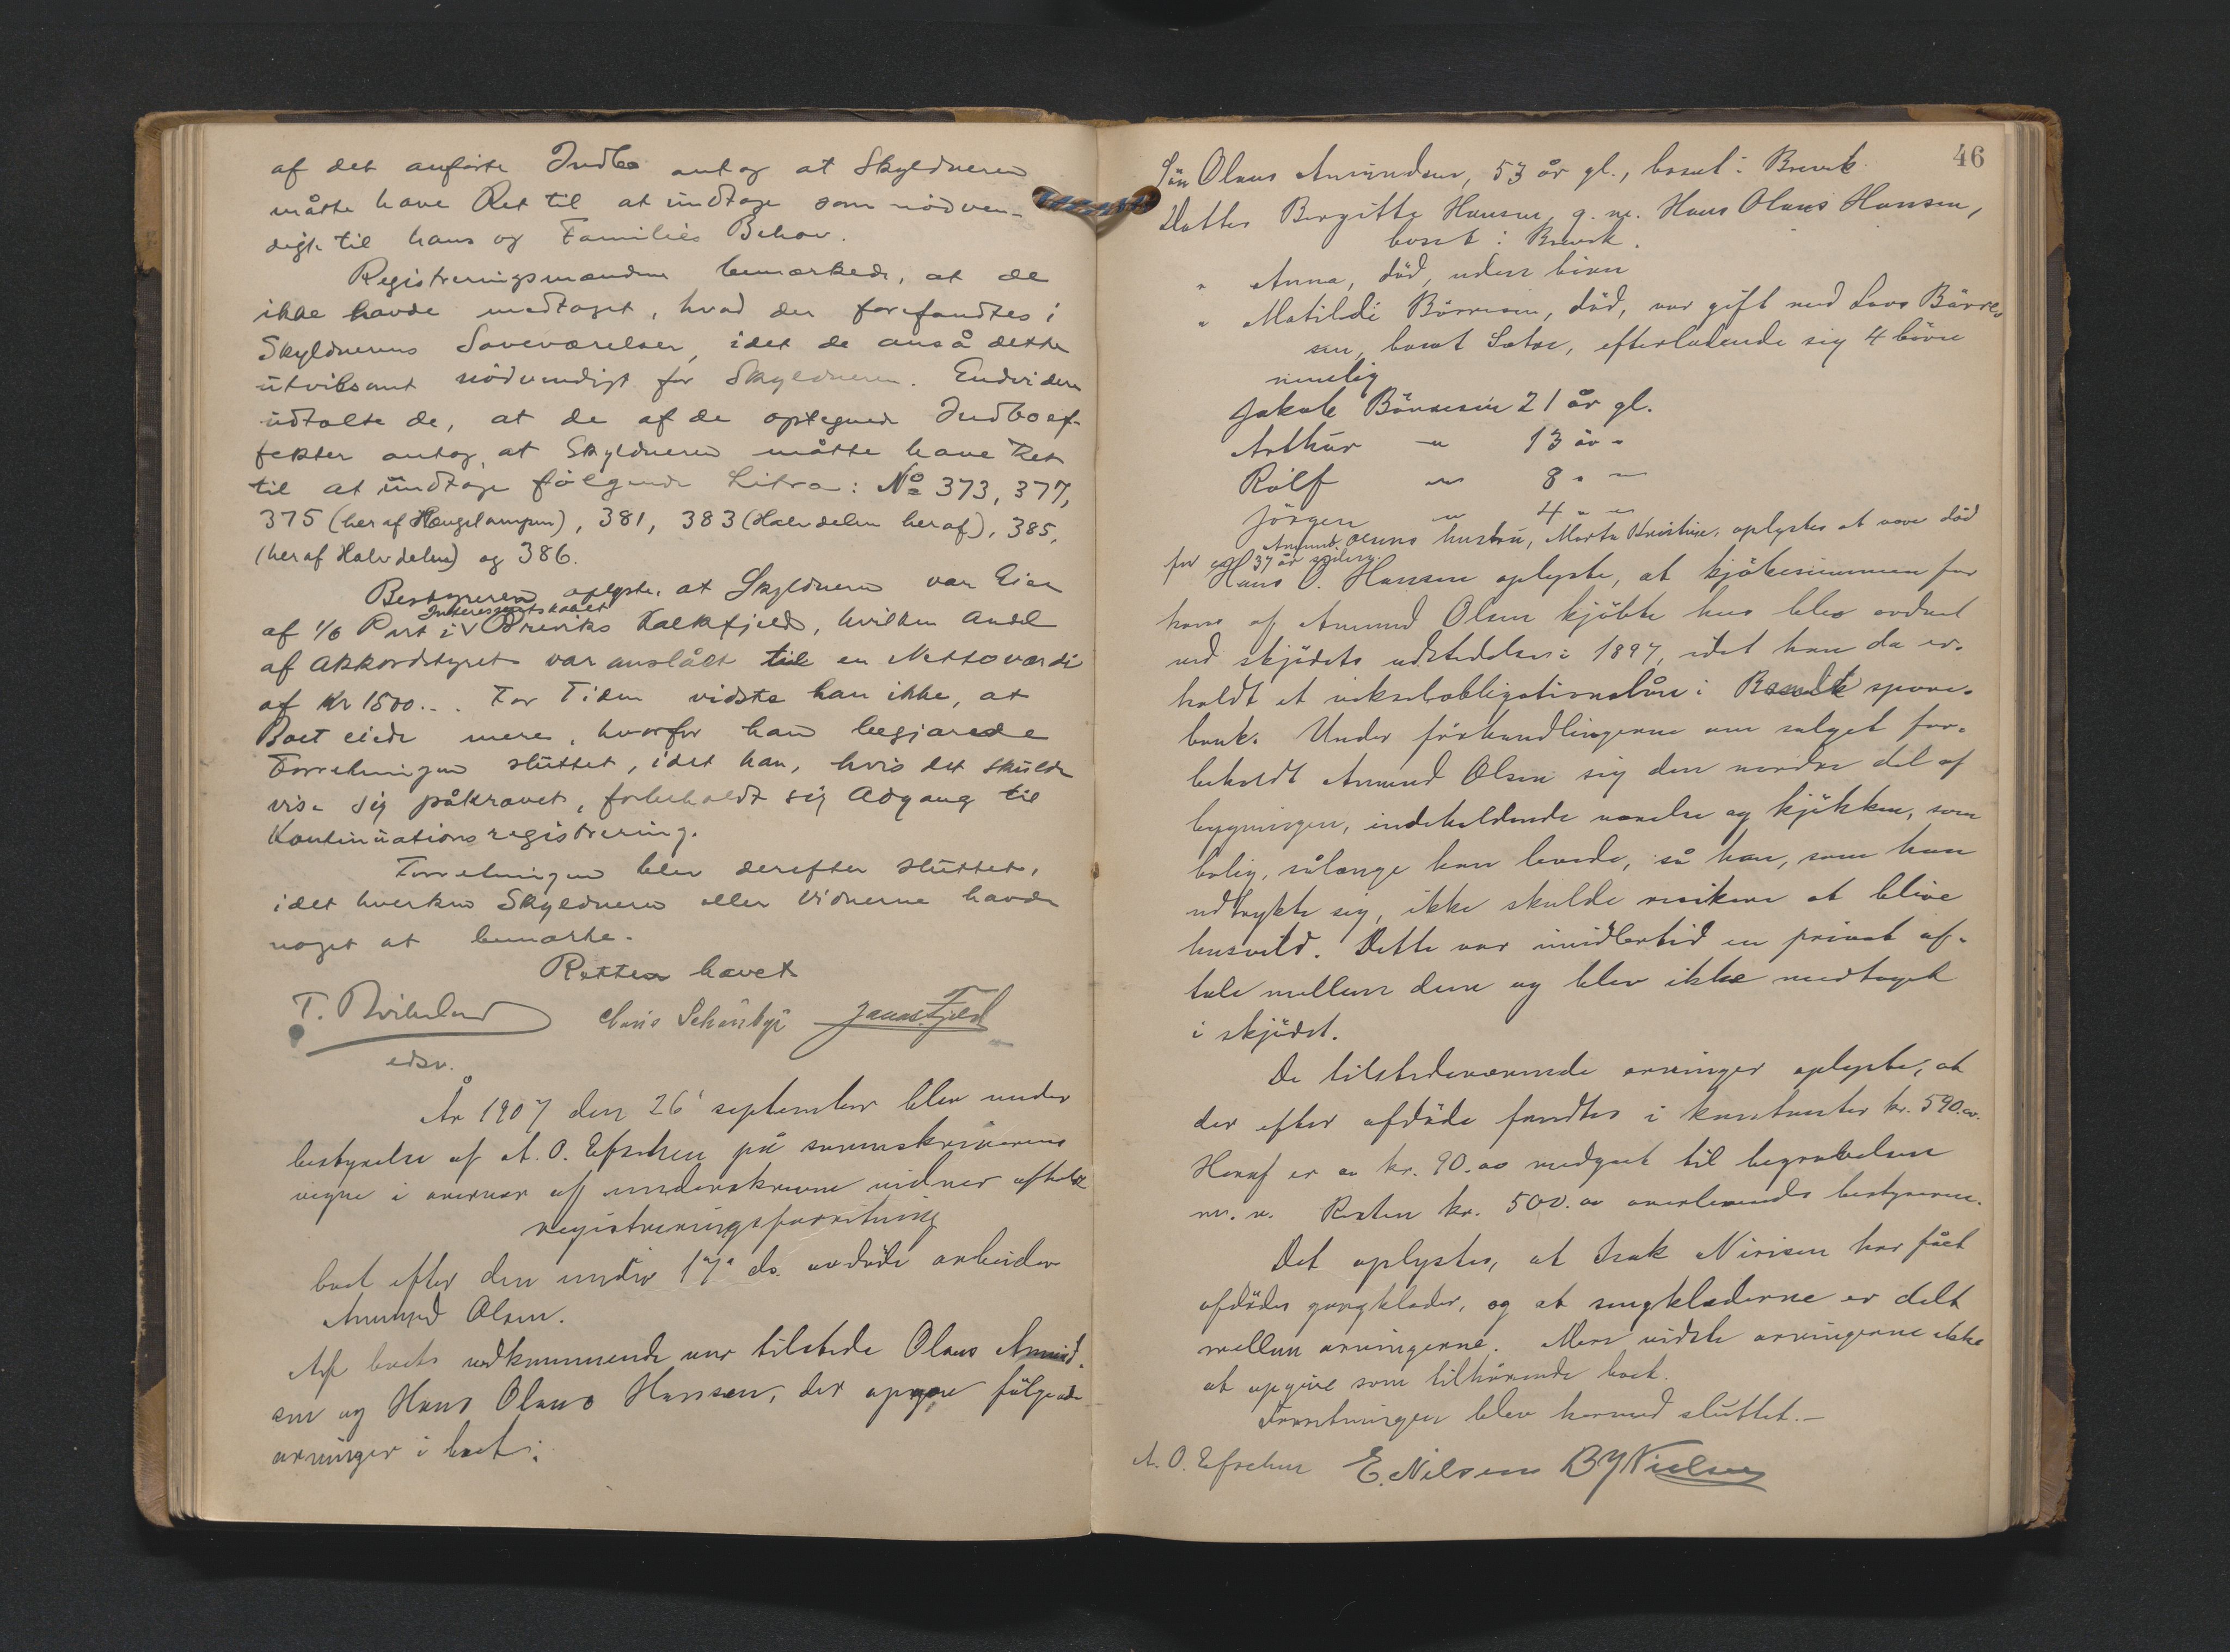 af det anførte Indbo antog at Skyldneren
måtte have Ret til at undtage som nødven-
digt til hans og Families Behov.
Registreringsmændene bemærkede, at de
ikke havde medtaget, hvad der forefandtes i
Skyldnerens Soveværelser, idet de anså dette
utvilsomt nödvendigt for Skyldneren. Endvidere
udtalte de, at de af de optegnede Indboef-
fekter antog, at Skyldneren måtte have Ret
til at undtage følgende Litra: No 373, 377,
375 (heraf Hængelampen), 381, 383 (Halvdelen heraf), 385,
(heraf Halvdelen) og 386.
Bestyreren oplyste, at Skyldneren var Eier
Interessentskabet
af 1/6 Part i V Breviks Kalkfjeld, hvilken Andel
af Akkordstyret var anslået til en Nettoværdi
af Kr 1500.-. For Tiden vidste han ikke, at
Boet eiede mere, hvorfor han begjærede
Forretningen sluttet, idet han, hvis det skulde
vise sig påkrævet, forbeholdt sig Adgang til
Kontinuationsregistrering.
Forretningen blev derefter sluttet,
idet hverken Skyldneren eller Vidnerne havde
noget at bemærke.
Retten hævet
T. Chris Schönbye Jonas Fjeld
edsv.
År 1907 den 26' september blev under
bestyrelse af A. O. Efschen på sorenskriverens
vegne i overvær af underskrevne vidner afholdt
registreringsforretning
boet efter den under 17' ds. avdøde arbeider
Amund Olsen.
Af boets vedkommende var tilstede Olaus Amund-
sen og Hans Olaus Hansen, der opgav følgende
arvinger i boet:
46
Sön Olaus Amundsen, 53 år gl., bosat i Brevik
Datter Bergitte Hansen, g. m. Hans Olaus Hansen,
bosat i Brevik.
" Anna, död, uden børn
" Matilde Börresen, död, var gift med Lars Börre-
sen, bosat, efterladende sig 4 børn
nemlig
Jakob Börresen 21 år gl.
Arthur " 13 år "
Rolf " 8 " "
Jörgen " 4 " "
Amund Olsens hustru, Marta Kristine, oplystes at være död
for ca 37 år siden.
Hans O. Hansen oplyste, at kjøbesummen for
hans af Amund Olsen kjøbte hus blev ordnet
ved skjødets udstedelse i 1897, idet han da er-
holdt et vekselobligationslån i spare-
bank. Under forhandlingerne om salget for-
beholdt Amund Olsen sig den nordre del af
bygningen, indeholdende værelse og kjøkken, som
bolig, sålænge han levede, så han, som han
udtrykte sig, ikke skulde risikere at blive
husvild. Dette var imidlertid en privat af-
tale mellem dem og blev ikke medtaget
i skjødet.
De tilstedeværende arvinger oplyste, at
der efter afdøde fandtes i kontanter kr. 590.00.
Heraf er ca kr. 90.00 medgået til begravelsen
m. v. Resten kr. 500.00 overleveredes bestyreren.
Det oplystes, at Isak Nirisen har fået
afdødes gangklæder, og at sengklæderne er delt
mellem arvingerne. Mere vidste arvingerne ikke
at opgive som tilhørende boet.
Forretningen blev hermed sluttet.-
A. O. Efschen E. Nilsen B Y Nielsen